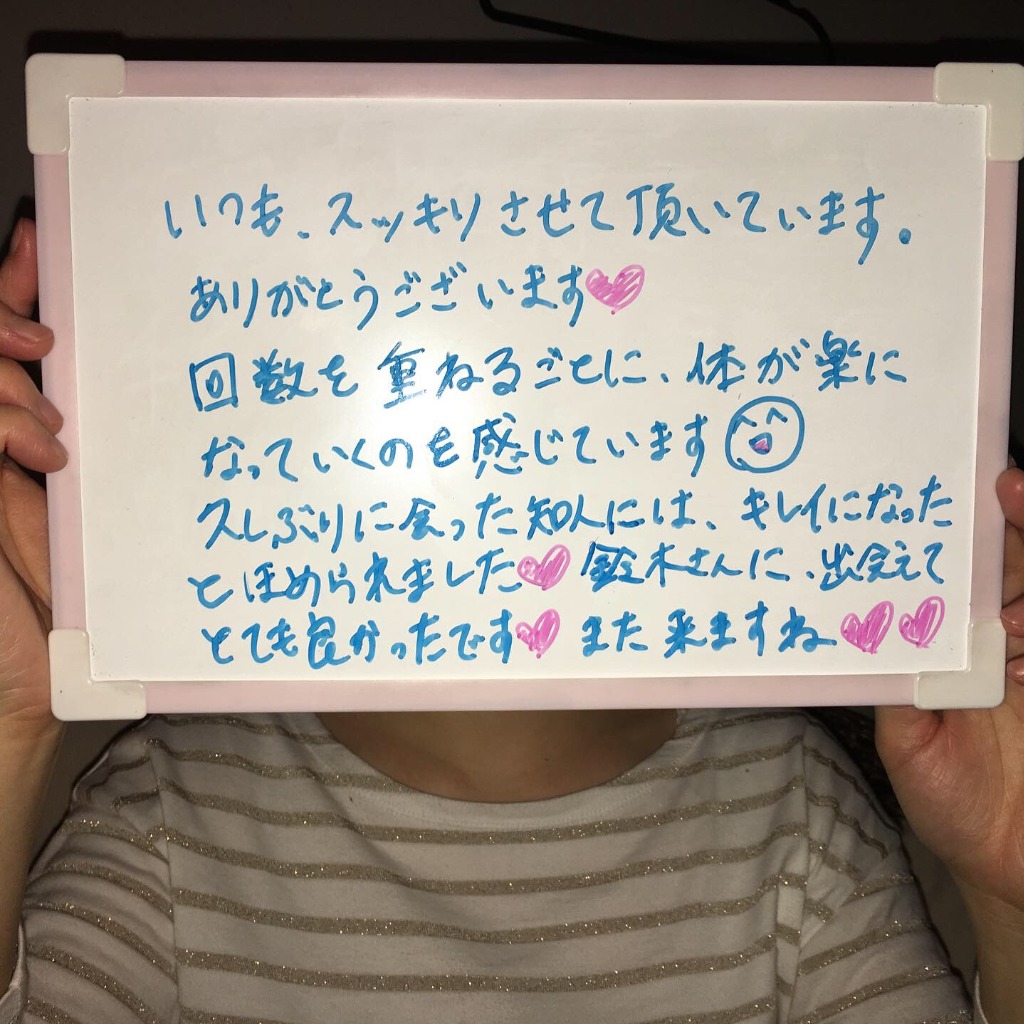 いつも、スッキリさせて頂いています。
ありがとうございます
回数を重ねるごとに、体が楽に
なっていくのを感じています
久しぶりに会った知人には、キレイになった
とほめられました 鈴木さんに、出会えて
とても良かったです また来ますね